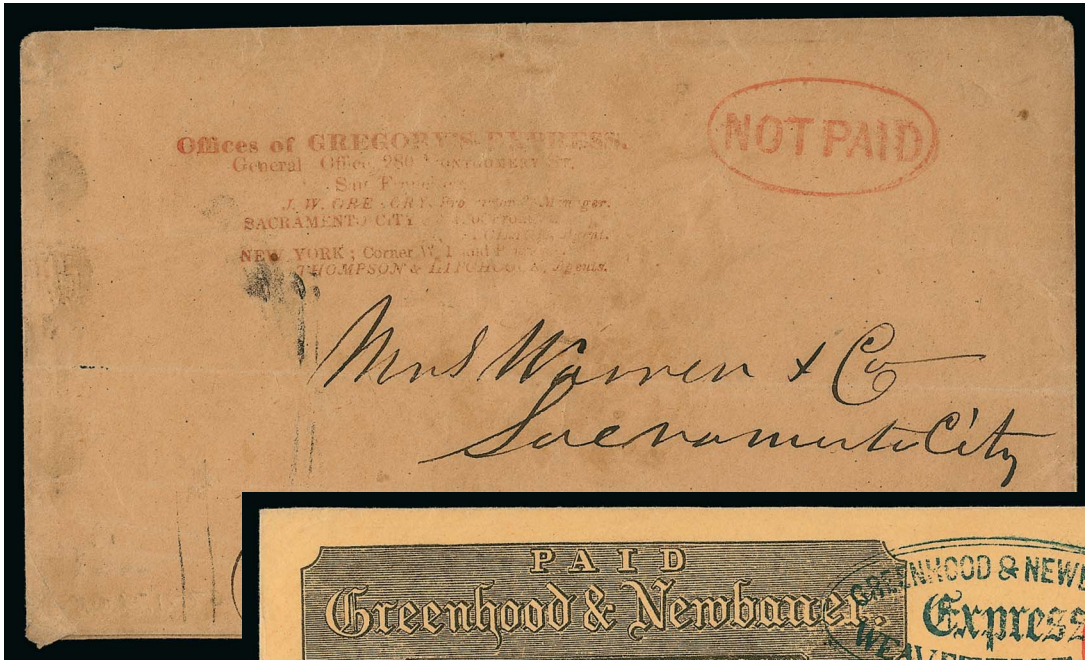 Offices of GREGORY'S EXPRESS.
General Office, 280 MONTGOMERY ST.
San
J. W. GREGORY, Manager.
SACRAMENTO CITY
Agent.
NEW YORK; Corner and
THOMPSON & HITCHCOCK, Agents.
NOT PAID
Warren & Co
Sacramento City
PAID
Greenhood & Newbauer.
GREENHOOD & NEWB
Express
WEAVER